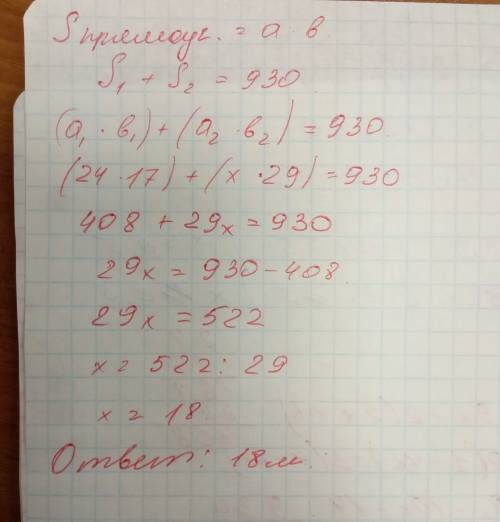 Sпрямоуг. = a · в
S₁ + S₂ = 930
(a₁ · в₁) + (a₂ · в₂) = 930
(24 · 17) + (x · 29) = 930
408 + 29x = 930
29x = 930 - 408
29x = 522
x = 522 : 29
x = 18
Ответ: 18м.